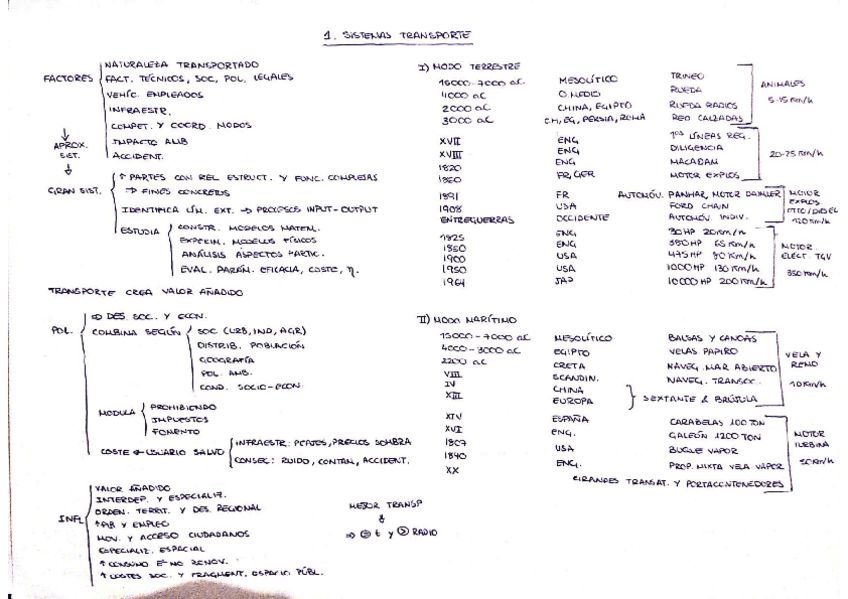 1. SISTEMAS TRANSPORTE
FACTORES
NATURALEZA TRANSPORTADO
FACT. TÉCNICOS, SOC, POL. LEGALES
VEHÍC. EMPLEADOS
INFRAESTR.
COMPET. Y COORD. MODOS
IMPACTO AMB
ACCIDENT.
APROX.
SIST.
GRAN SIST.
↑ PARTES CON REL ESTRUCT. Y FUNC. COMPLEJAS
⇒ FINES CONCRETOS
IDENTIFICA LÍM. EXT. → PROCESOS INPUT-OUTPUT
ESTUDIA
CONSTR. MODELOS MATEM.
EXPERIM. MODELOS FÍSICOS
ANÁLISIS ASPECTOS PARTIC.
EVAL. PARÁM. EFICACIA, COSTE, η.
TRANSPORTE CREA VALOR AÑADIDO
POL.
⇒ DES. SOC. Y ECON.
COMBINA SEGÚN
SOC (URB, IND, AGR)
DISTRIB. POBLACIÓN
GEOGRAFÍA
POL. AMB.
COND. SOCIO-ECON.
MODULA
PROHIBIENDO
IMPUESTOS
FOMENTO
COSTE USUARIO SALVO
INFRAESTR: PEAJES, PRECIOS SOMBRA
CONSEC: RUIDO, CONTAM, ACCIDENT.
INFL
VALOR AÑADIDO
INTERDEP. Y ESPECIALIZ.
ORDEN. TERRIT. Y DES. REGIONAL
↑ PIB Y EMPLEO
MOV. Y ACCESO CIUDADANOS
ESPECIALIZ. ESPACIAL
↑ CONSUMO E NO RENOV.
↑ COSTES SOC. Y FRAGMENT. ESPACIO PÚBL.
MEJOR TRANSP
⇒ t y RADIO
I) MODO TERRESTRE
7000 aC MESOLÍTICO TRINEO
4000 aC O.MEDIO RUEDA
2000 aC CHINA, EGIPTO RUEDA RADIOS
3000 aC CH, EG, PERSIA, ROMA RED CALZADAS
ANIMALES
5-15 Km/h
XVII ENG 1as LÍNEAS REG.
XVIII ENG DILIGENCIA
1820 ENG MACADAM
1860 FR, GER MOTOR EXPLOS
20-25 Km/h
1891 FR AUTOMÓV. PANHAR, MOTOR DAIMLER
1908 USA FORD CHAIN
ENTREGUERRAS OCCIDENTE AUTOMÓV INDIV.
MOTOR
EXPLOS
120 Km/h
1825 ENG 30 HP 20 Km/h
1850 ENG 380 HP 65 Km/h
1900 USA 475 HP 80 Km/h
1950 USA 1000 HP 130 Km/h
1964 JAP 10000 HP 200 Km/h
MOTOR
ELÉCT. TGV
350 Km/h
II) MODO MARÍTIMO
7000 aC MESOLÍTICO BALSAS Y CANOAS
4000-3000 aC EGIPTO VELAS PAPIRO
2200 aC CRETA NAVEG. MAR ABIERTO
VIII SCANDIN. NAVEG. TRANSOC.
IV CHINA
XIII EUROPA
SEXTANTE & BRÚJULA
VELA Y
REMO
10 Km/h
XIV ESPAÑA CARABELAS 100 TON
XVI ENG. GALEÓN 1200 TON
1807 USA BUQUE VAPOR
1840 ENG. PROP. MIXTA VELA VAPOR
XX GRANDES TRANSAT. Y PORTACONTENEDORES
MOTOR
TURBINA
50 Km/h